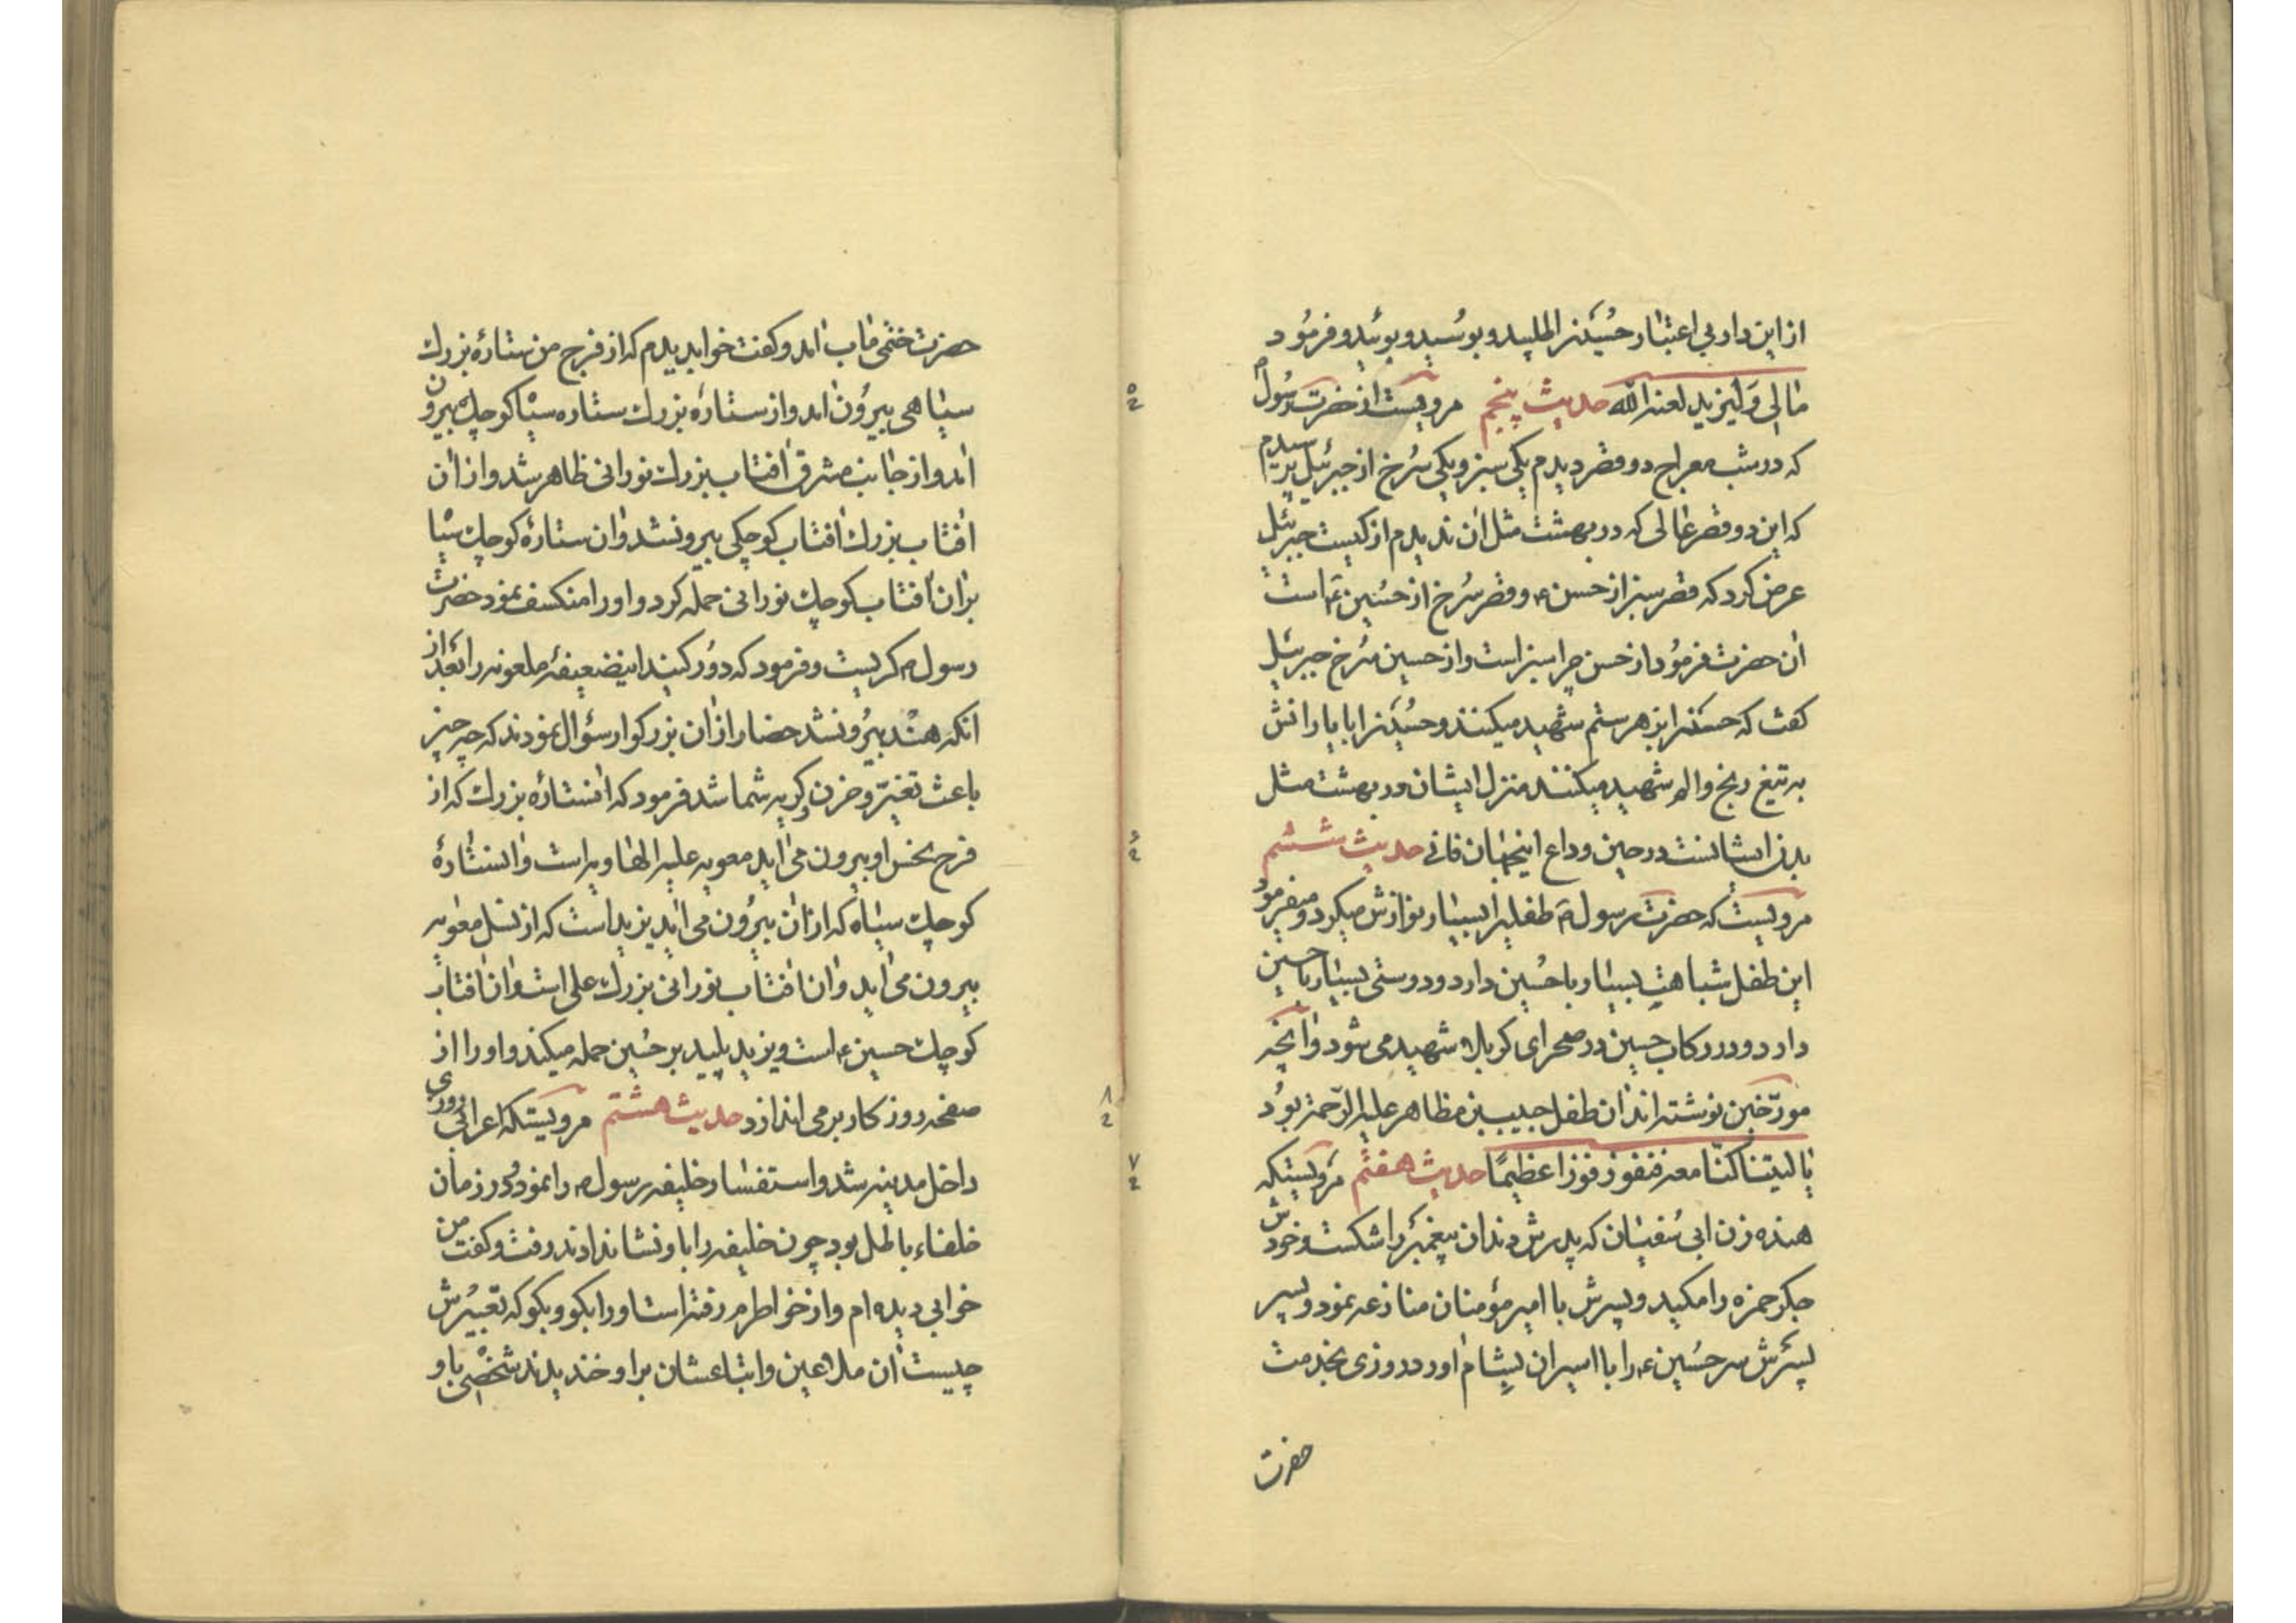 از این دار بی اعتبار حُسَینرا طلبید و بوسُید و بوئید و فرمُود
مٰا لی وَ لیزید لعنه الله حدیث پنجم مرویست از حضرت رسُول م
که در شب معراج دو قصر دیدم یکی سبز و یکی سُرخ از جبرئیل پرسیدم
که این دو قصر عٰالی که در بهشت مثل ان ندیدم از کیست جبرئیل
عرض کرد که قصر سبز از حسن ع و قصر سُرخ از حُسَین ع است
اٰن حضرت فرمُود از حسن چرا سبز است و از حسین سُرخ جبرئیل
کفت که حسنرا بزهر ستم شهید میکنند و حُسَینرا با یارانش
به تیغ رنج و الم شهید میکنند منزل ایشان در بهشت مثل
بدن ایشانست در حین وداع اینجهٰان فانی حدیث ششم
مرویست که حضرت رسول ص طفلیرا بسیٰار نوازش میکرد و میفرمود
این طفل شباهت بسیٰار با حُسین دارد و دوستی بسیٰار با حسین
دارد و در رکاب حسین در صحرای کربلا شهید می شود و اٰنچه
مورّخین نوشته اند اٰن طفل حبیب بن مظاهر علیه الرّحمة بوُد
یٰا لیتنا کنّا معه فنفوز فوزا عظیمًا حدیث هفتم مرویستکه
هنده زن ابی سُفیٰان که پدرش دندان پیغمبر را شکست و خودش
جکر حمزه را مکید و پسرش با امیر مؤمنان منازعه نمود و پسر
پسَرش سر حسُین ع را با اسیران بشٰام اورد روزی بخدمت
حضرت
حضرت ختمی مٰاب اٰمد و کفت خواب دیدم که از فرج من ستارهٔ بزرك
سیٰاهی بیرُون اٰمد و از ستارهٔ بزرك ستاره سیٰا کوچك بیرون
اٰمد و از جٰانب مشرق اٰفتٰاب بزرك نورانی ظاهر شد و از اٰن
اٰفتٰاب بزرك اٰفتٰاب کوچکی بیرونشد و اٰن ستارهٔ کوچك سیٰا
بر اٰن اٰفتٰاب کوچك نورانی حمله کرد و او را منکسف نمود حضرت
رسول م کریست و فرمود که دوُر کنید اینضعیفهٔ ملعونه را بعد از
انکه هند بیرُونشد حضار از اٰن بزرکوار سؤال نمودند که چه چیز
باعث تغیّر و حزن و کریه شما شد فرمود که اٰنستارهٔ بزرك که از
فرج نحس او بیرون می اٰید معویه علیه الهٰاویه است و اٰنستٰارهٔ
کوچك سیٰاه که از اٰن بیرُون می اٰید یزید است که از نسل معٰویه
بیرون می اٰید و اٰن اٰفتٰاب نورانی بزرك علی است و اٰن اٰفتاب
کوچك حسین ع است و یزید پلید بر حُسین حمله میکند و او را از
صفحه روزکار بر می اندازد حدیث هشتم مرویستکه اعرابی روزی
داخل مدینه شد و استفسٰار خلیفه رسول م را نمود و در زمان
خلفٰاء باطل بود چون خلیفه را باو نشاندادند رفت و کفت من
خوابی دیده ام و از خواطرم رفته است او را بکو و بکو که تعبیُرش
چیست اٰن ملاعین و اتباعشان بر او خندیدند شخصی باو